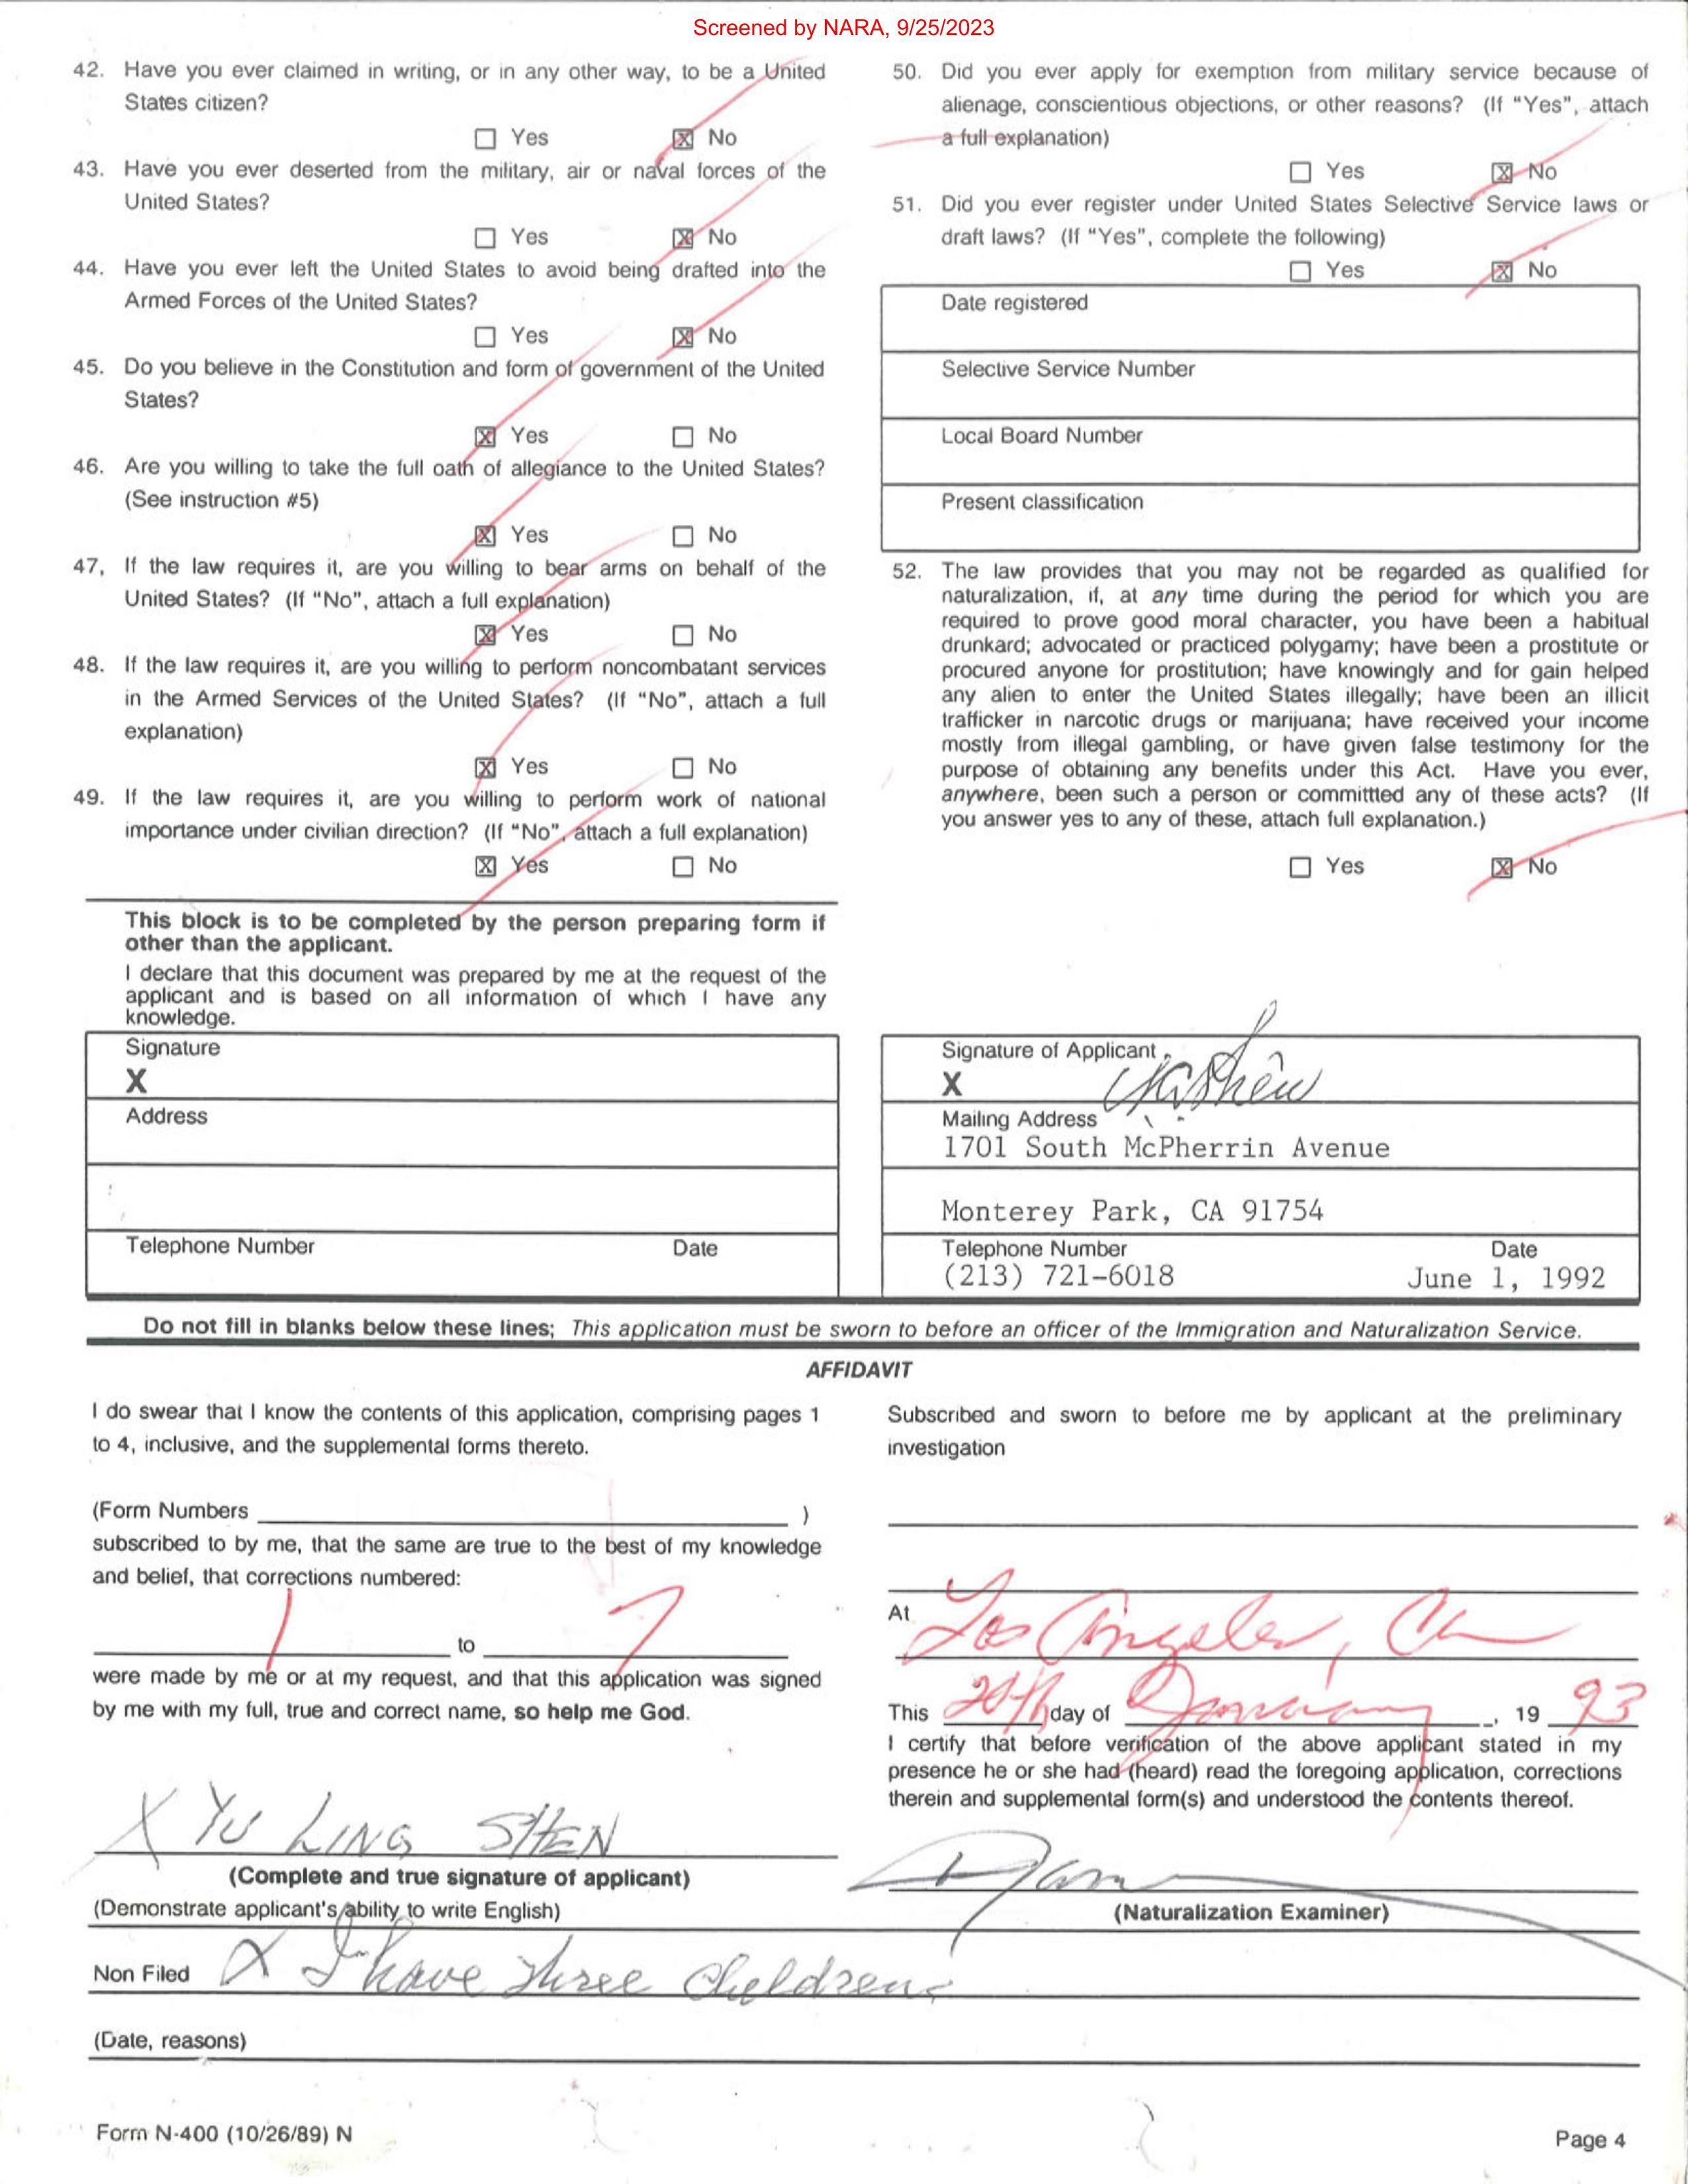 Screened by NARA, 9/25/2023
42. Have you ever claimed in writing, or in any other way, to be a United
States citizen?
☐ Yes ☒ No
43. Have you ever deserted from the military, air or naval forces of the
United States?
☐ Yes ☒ No
44. Have you ever left the United States to avoid being drafted into the
Armed Forces of the United States?
☐ Yes ☒ No
45. Do you believe in the Constitution and form of government of the United
States?
☒ Yes ☐ No
46. Are you willing to take the full oath of allegiance to the United States?
(See instruction #5)
☒ Yes ☐ No
47, If the law requires it, are you willing to bear arms on behalf of the
United States? (If "No", attach a full explanation)
☒ Yes ☐ No
48. If the law requires it, are you willing to perform noncombatant services
in the Armed Services of the United States? (If "No", attach a full
explanation)
☒ Yes ☐ No
49. If the law requires it, are you willing to perform work of national
importance under civilian direction? (If "No", attach a full explanation)
☒ Yes ☐ No
50. Did you ever apply for exemption from military service because of
alienage, conscientious objections, or other reasons? (If "Yes", attach
a full explanation)
☐ Yes ☒ No
51. Did you ever register under United States Selective Service laws or
draft laws? (If "Yes", complete the following)
☐ Yes ☒ No
Date registered
Selective Service Number
Local Board Number
Present classification
52. The law provides that you may not be regarded as qualified for
naturalization, if, at any time during the period for which you are
required to prove good moral character, you have been a habitual
drunkard; advocated or practiced polygamy; have been a prostitute or
procured anyone for prostitution; have knowingly and for gain helped
any alien to enter the United States illegally; have been an illicit
trafficker in narcotic drugs or marijuana; have received your income
mostly from illegal gambling, or have given false testimony for the
purpose of obtaining any benefits under this Act. Have you ever,
anywhere, been such a person or committted any of these acts? (If
you answer yes to any of these, attach full explanation.)
☐ Yes ☒ No
This block is to be completed by the person preparing form if
other than the applicant.
I declare that this document was prepared by me at the request of the
applicant and is based on all information of which I have any
knowledge.
Signature
X
Address
Telephone Number Date
Signature of Applicant
X
Mailing Address
1701 South McPherrin Avenue
Monterey Park, CA 91754
Telephone Number Date
(213) 721-6018 June 1, 1992
Do not fill in blanks below these lines; This application must be sworn to before an officer of the Immigration and Naturalization Service.
AFFIDAVIT
I do swear that I know the contents of this application, comprising pages 1
to 4, inclusive, and the supplemental forms thereto.
(Form Numbers )
subscribed to by me, that the same are true to the best of my knowledge
and belief, that corrections numbered:
1 to 7
were made by me or at my request, and that this application was signed
by me with my full, true and correct name, so help me God.
X YU LING SHEN
(Complete and true signature of applicant)
(Demonstrate applicant's ability to write English)
Subscribed and sworn to before me by applicant at the preliminary
investigation
At Los Angeles, Ca
This 20th day of January, 19 93
I certify that before verification of the above applicant stated in my
presence he or she had (heard) read the foregoing application, corrections
therein and supplemental form(s) and understood the contents thereof.
(Naturalization Examiner)
Non Filed X I have three Children.
(Date, reasons)
Form N-400 (10/26/89) N Page 4